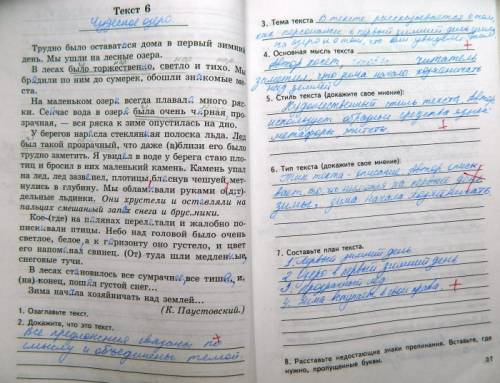 Текст 6
Чудесное озеро.
Трудно было оставаться дома в первый зимний
день. Мы ушли на лесные озера.
В лесах было торжественно, светло и тихо. Мы
бродили по ним до сумерек, обошли знакомые ме-
ста.
На маленьком озере всегда плавало много ряс-
ки. Сейчас вода в озере была очень чёрная, про-
зрачная, — вся ряска к зиме опустилась на дно.
У берегов наросла стеклянная полоска льда. Лед
был такой прозрачный, что даже (в)близи его было
трудно заметить. Я увидел в воде у берега стаю пло-
тиц и бросил в них маленький камень. Камень упал
на лед, лед зазвенел, плотицы, блеснув чешуей, мет-
нулись в глубину. Мы обламывали руками о(д,т)-
дельные льдинки. Они хрустели и оставляли на
пальцах смешанный запах снега и брусники.
Кое-(где) на полянах перелетали и жалобно по-
пискивали птицы. Небо над головой было очень
светлое, белое, а к горизонту оно густело, и цвет
его напоминал свинец. (От)туда шли медленные,
снеговые тучи.
В лесах становилось все сумрачнее, все тише, и,
(на)-конец, пошел густой снег...
Зима начала хозяйничать над землей...
(К. Паустовский.)
1. Озаглавьте текст.
2. Докажите, что это текст.
Все предложения связаны по
смыслу и объединены темой.
3. Тема текста В тексте рассказывается о том,
как персонажи в первый зимний день ушли
на озеро и о том, что они увидели там
4. Основная мысль текста
автор хочет, чтобы читатель
заметил, что зима начала хозяйничать
над землёй
5. Стиль текста (докажите свое мнение):
Художественный стиль текста автор
использует образные средства языка
метафоры эпитеты
6. Тип текста (докажите свое мнение):
Тип текста - описание автор описы-
вает
зимы. зима начала хозяйничать
7. Составьте план текста.
1. Первый зимний день
2. Озеро в первый зимний день
3. Прозрачный лёд
4. Зима вступает в свои права.
8. Расставьте недостающие знаки препинания. Вставьте, где
нужно, пропущенные буквы.
31